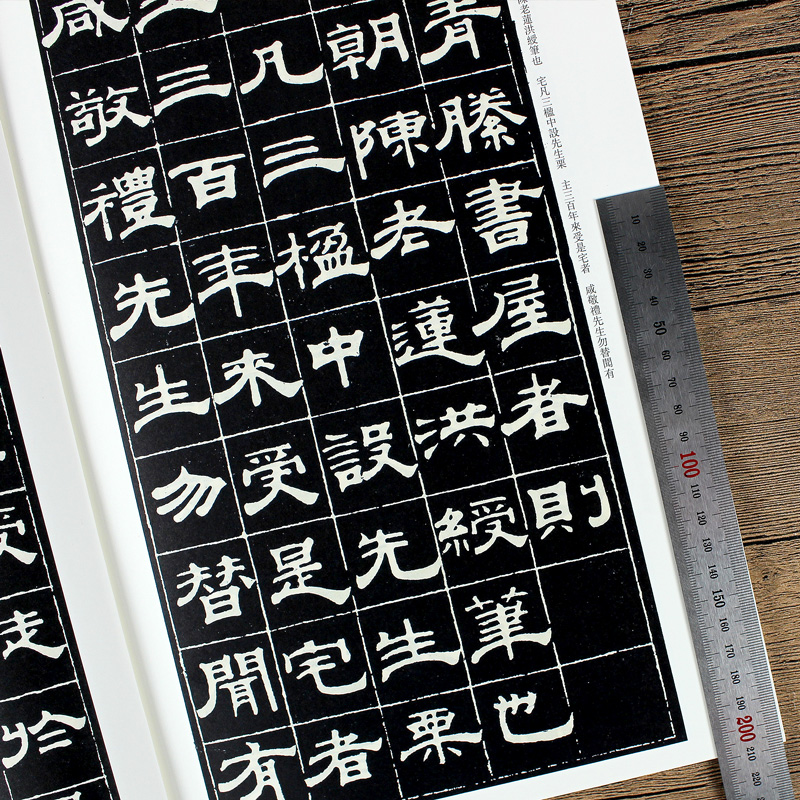 青縢書屋者則
朝陳老蓮洪綬筆也
凡三楹中設先生栗
主三百年來受是宅者
咸敬禮先生勿替聞有
陳老蓮洪綬筆也 宅凡三楹中設先生栗 主三百年來受是宅者 咸敬禮先生勿替聞有
走於
10 20 30 40 50 60 70 80 90 100 110 120 130 140 150 160 170 180 190 200 210 220